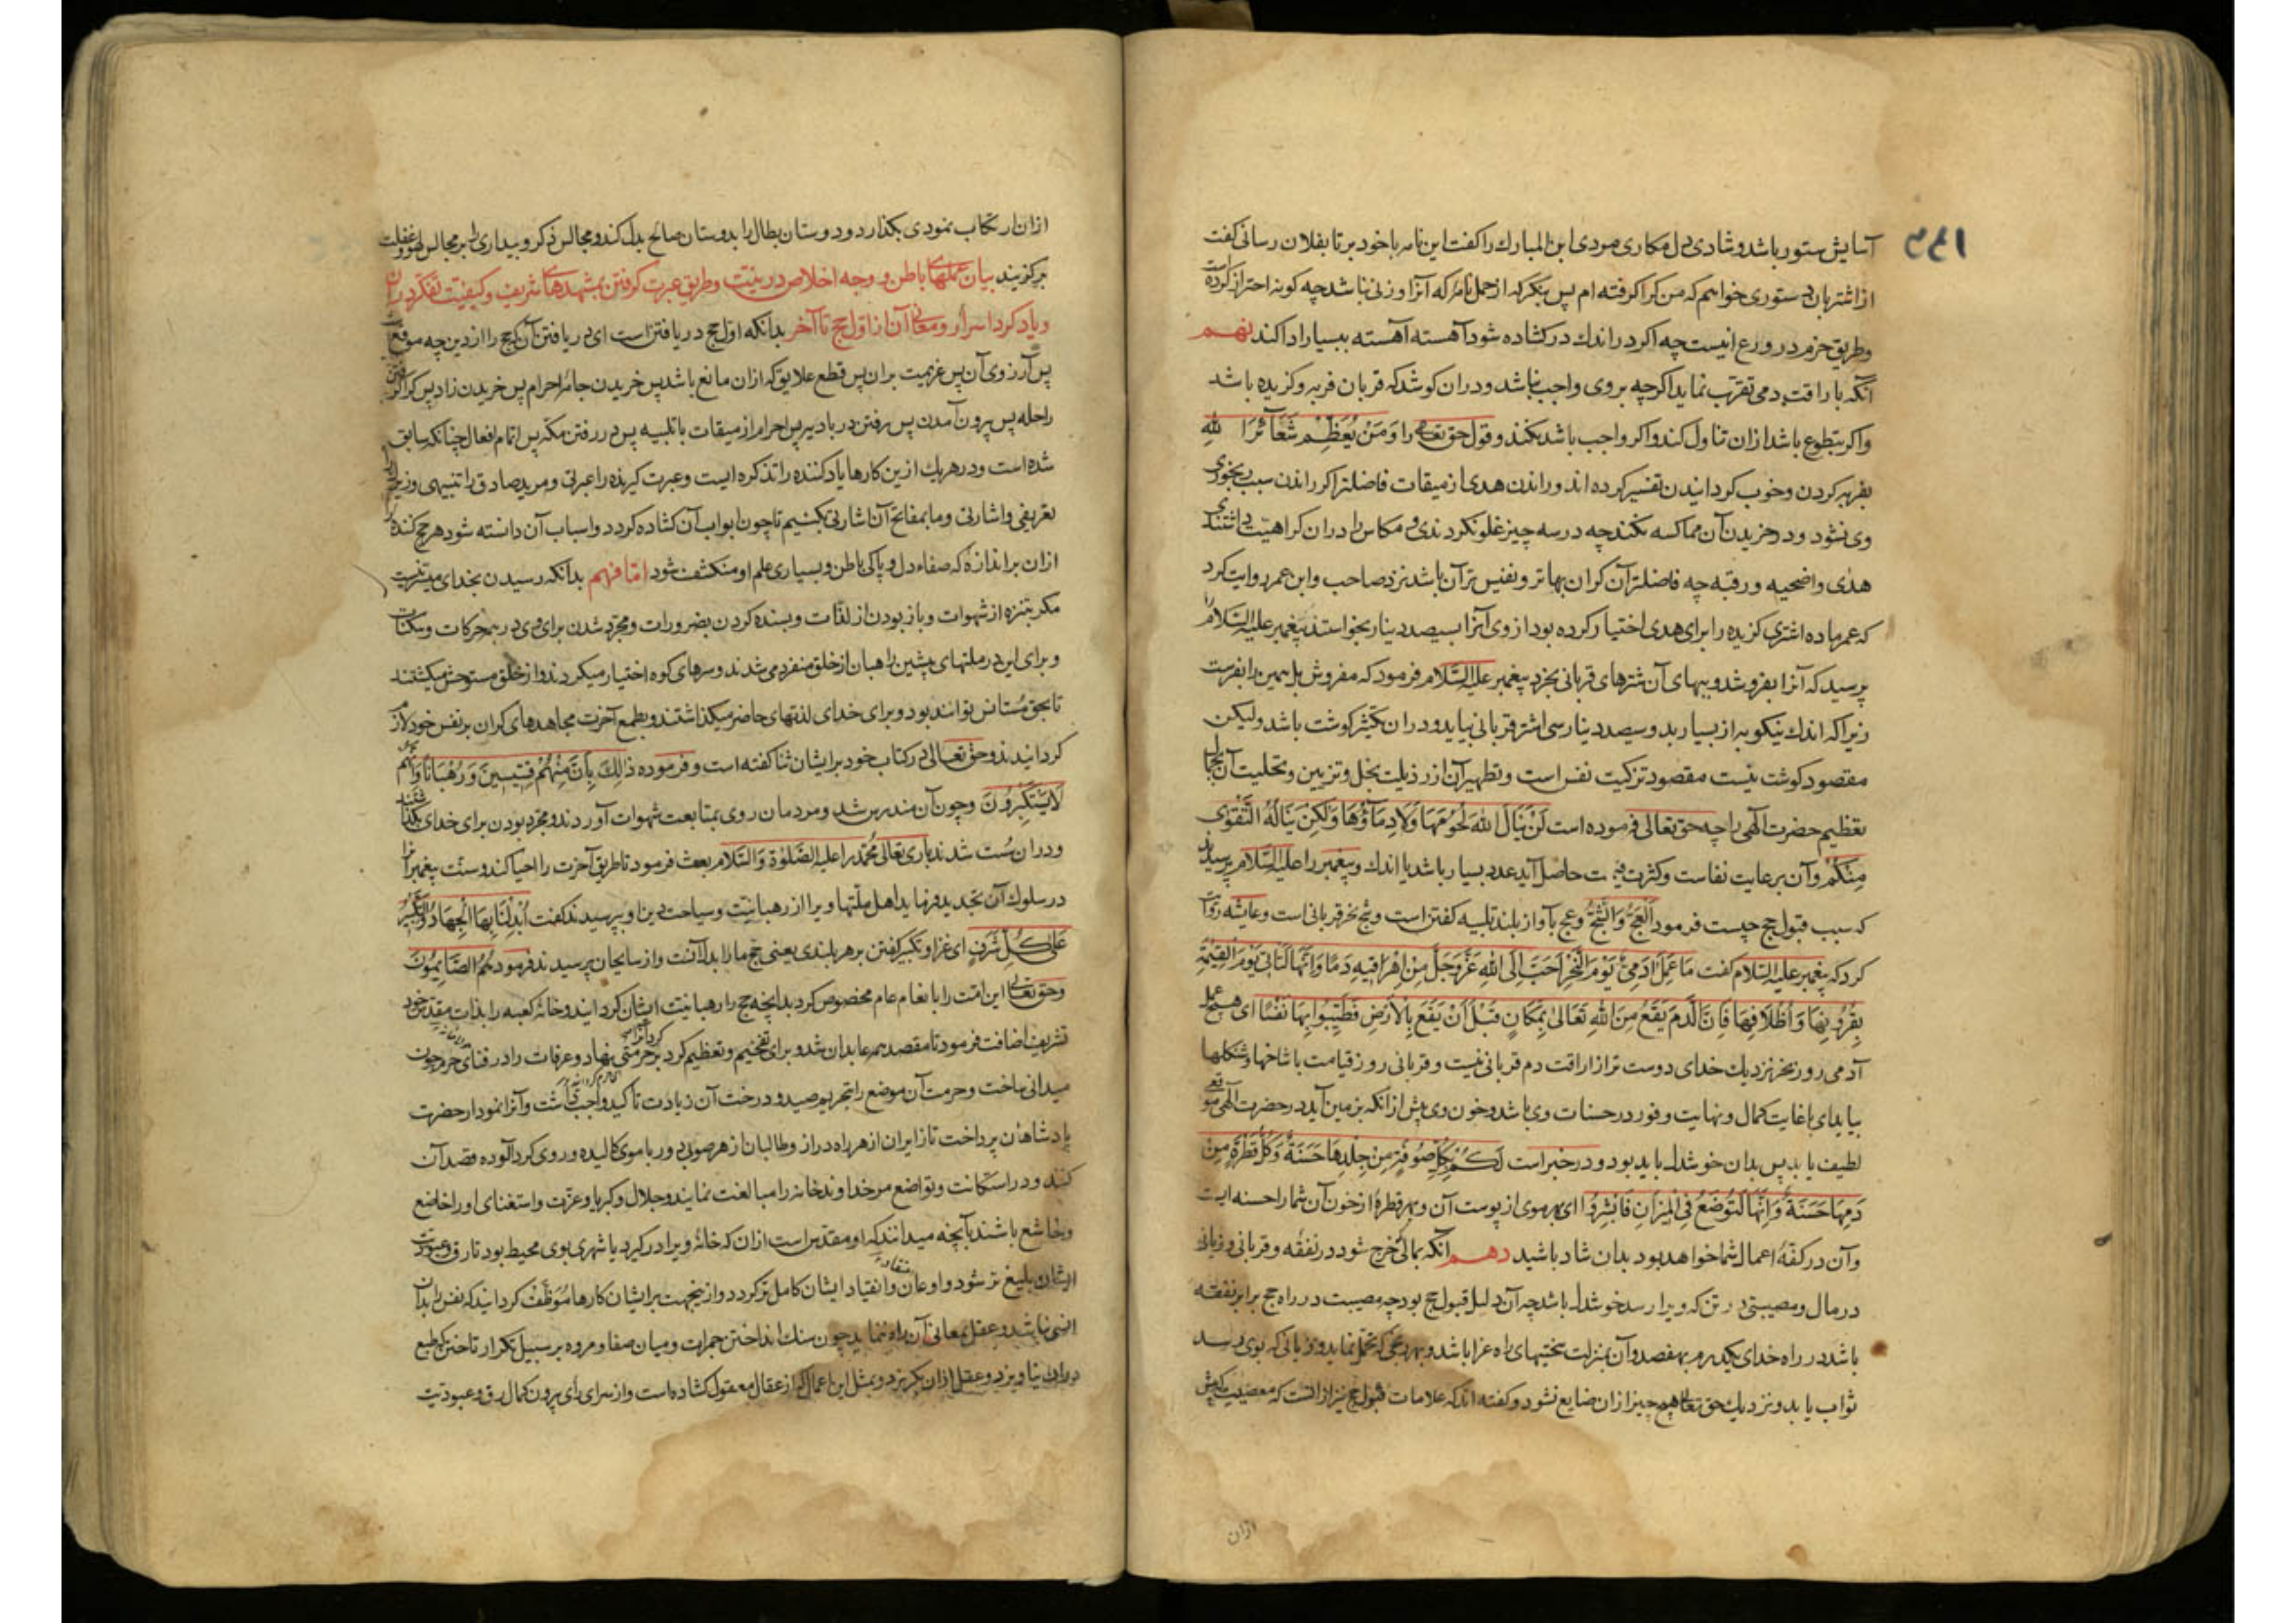 آسایش ستور باشد و شادی دل مکاری مردی ابن المبارک را کفت این نامه با خود بر تا بفلان رسانی کفت
از اشتربان دستوری خواهم که من کرا کرفته ام پس بنکر که از حمل نامه که آنرا وزنی نباشد چه کونه احتراز کرده است
وطریق حزم در ورع اینست چه اکر در اندک در کشاده شود آهسته آهسته ببسیار ادا کند نهم
آنکه باراقت دمی تقرب نماید اکرچه بر وی واجب نباشد ودران کوشد که قربان فربه وکزیده باشد
واکر بتطوع باشد ازان تناول کند واکر واجب باشد نکند وقول حق تعالی را وَمَنْ يُعَظِّمْ شَعَآئِرَ اللهِ
بفربه کردن وخوب کردانیدن تفسیر کرده اند وراندن هدی از میقات فاضلتر اکر راندن سبب رنجوری
وی نشود ودر خریدن آن مماکسه نکند چه در سه چیز غلو نکردندی و مکاس را دران کراهیت داشتندی
هدی واضحیه ورقبه چه فاضلترآن کران بهاتر ونفیس ترآن باشد نزد صاحب وابن عمر روایت کرد
که عمر ماده اشتری کزیده را برای هدی اختیار کرده بود از وی آنرا بسیصد دینار بخواستند پیغمبر علیه السّلام را
پرسید که آنرا بفروشد وببهای آن شترهای قربانی بخرد پیغمبر علیه السّلام فرمود که مفروش بل همین را بفرست
زیرا که اندک نیکو به از بسیار بد وسیصد دینار سی اشتر قربانی بیاید ودران تکثیر کوشت باشد ولیکن
مقصود کوشت نیست مقصود تزکیت نفس است وتطهیر آن از رذیلت بخل وتزیین وتحلیت آن بجمال
تعظیم حضرت الهی را چه حق تعالی فرموده است لَنْ يَنَالَ اللهَ لُحُومُهَا وَلَا دِمَآؤُهَا وَلٰكِنْ يَنَالُهُ التَّقْوٰى
مِنْكُمْ وآن برعایت نفاست وکثرت قیمت حاصل آید عدد بسیار باشد یا اندک وپیغمبر را علیه السّلام پرسیدند
که سبب قبول حج چیست فرمود اَلْعَجُّ وَالثَّجُّ وعج بآواز بلند تلبیه کفتن است وثج نحر قربانی است وعایشه روایت
کرد که پیغمبر علیه السلام کفت مَا عَمِلَ اٰدَمِيٌّ يَوْمَ النَّحْرِ اَحَبَّ اِلَى اللهِ عَزَّ وَجَلَّ مِنْ اِهْرَاقِهِ دَمًا وَاِنَّهَا لَتَأْتِيْ يَوْمَ الْقِيٰمَةِ
بِقُرُونِهَا وَاَظْلَافِهَا فَاِنَّ الدَّمَ يَقَعُ مِنَ اللهِ تَعَالٰى بِمَكَانٍ قَبْلَ اَنْ يَقَعَ بِالْاَرْضِ فَطَيِّبُوا بِهَا نَفْسًا ای هیچ عمل
آدمی روز نحر نزدیک خدای دوست تر از اراقت دم قربانی نیست وقربانی روز قیامت با شاخها وشکلها
بیاید ای با غایت کمال ونهایت وفور در حسنات وی باشد وخون وی پیش از آنکه بزمین آید در حضرت الهی موقعی
لطیف یابد پس بدان خوشدل باید بود ودر خبر است لَكُمْ بِكُلِّ صُوفَةٍ مِنْ جِلْدِهَا حَسَنَةٌ وَكُلِّ قَطْرَةٍ مِنْ
دَمِهَا حَسَنَةٌ وَاِنَّهَا لَتُوضَعُ فِي الْمِيْزَانِ فَابْشِرُوا ای بهر موی از پوست آن وبهر قطره از خون آن شما را حسنه ایست
وآن در کفهٔ اعمال شما خواهد بود بدان شاد باشید دهم آنکه بمالی که خرج شود در نفقه وقربانی وزیانی
در مال ومصیبتی در تن که ویرا رسد خوشدل باشد چه آن دلیل قبول حج بود چه مصیبت در راه حج برابر نفقه
باشد در راه خدای یکدرم بهفصد وآن بمنزلت سختیهای راه غزا باشد وبهر رنجی که تحمل نماید وزیانی که بوی رسد
ثواب یابد ونزدیک حق تعالی هیچ چیز ازان ضایع نشود وکفته اند که علامات قبول حج نیز از انست که معصیت که پیش
ازان
ازان ارتکاب نمودی بکذارد ودوستان بطال را بدوستان صالح بدل کند ومجالس ذکر وبیداری را بر مجالس لهو وغفلت
برکزیند بیان عملهای باطن و وجه اخلاص در نیت وطریق عبرت کرفتن بمشهدهای شریف وکیفیت تفکر دران
ویاد کرد اسرار ومعانی آن از اول حج تا آخر بدانکه اول حج دریافتن است ای دریافتن آنکه حج را از دین چه موقع است
پس آرزوی آن پس عزیمت بران پس قطع علایق که ازان مانع باشد پس خریدن جامهٔ احرام پس خریدن زاد پس کرا کرفتن
راحله پس برون آمدن پس رفتن در بادیه پس احرام از میقات با تلبیه پس در رفتن مکه پس اتمام افعال چنانکه سابق
شده است ودر هریک ازین کارها یاد کننده را تذکره ایست وعبرت کیرنده را عبرتی ومرید صادق را تنبیهی وزیرک را
تعریفی واشارتی وما بمفاتح آن اشارتی بکنیم تا چون ابواب آن کشاده کردد واسباب آن دانسته شود هر حج کننده
ازان براندازهٔ که صفاء دل و پاکی باطن وبسیاری علم او منکشف شود امّا فهم بدانکه رسیدن بخدای میسّر نیست
مکر بتنزه از شهوات وبازبودن از لذّات وبسنده کردن بضرورات ومجرد شدن برای وی در همه حرکات وسکنات
وبرای این در ملتهای پیشین راهبان از خلق منفرد می شدند وسرهای کوه اختیار میکردند واز خلق مستوحش میکشتند
تا بحق مستانس توانند بود وبرای خدای لذتهای حاضر میکذاشتند وبطمع آخرت مجاهدهای کران بر نفس خود لازم
کردانیدند وحق تعالی در کتاب خود برایشان ثنا کفته است وفرموده ذٰلِكَ بِاَنَّ مِنْهُمْ قِسِّيسِينَ وَرُهْبَانًا وَاَنَّهُمْ
لَا يَسْتَكْبِرُونَ وچون آن مندرس شد ومردمان روی بمتابعت شهوات آوردند ومجرد بودن برای خدای بکذاشتند
ودران سست شدند باری تعالی محمّد را علیه الصّلوٰة والسّلام بعث فرمود تا طریق آخرت را احیا کند وسنت پیغمبرانرا
در سلوک آن تجدید فرماید اهل ملتها ویرا از رهبانیت وسیاحت دین او پرسیدند کفت اُبْدِلْنَا بِهَا الْجِهَادَ وَالتَّكْبِيْرَ
عَلٰى كُلِّ شَرَفٍ ای غزا وتکبیر کفتن بر هر بلندی یعنی حج ما را بدل آنست واز سایحان پرسیدند فرمود هُمُ الصَّائِمُوْنَ
وحق تعالی این امّت را بانعام عام مخصوص کرد بدانچه حج را رهبانیت ایشان کردانید وخانهٔ کعبه را بذات مقدس خود
تشریف اضافت فرمود تا مقصد همه عابدان شد وبرای تفخیم وتعظیم کرد بر کرد آنرا حرمتی نهاد وعرفات را در فنای حرم چون
میدانی ساخت وحرمت آن موضع را بتحریم صید ودرخت آن زیادت تاکید واجب داشت وآنرا نمودار حضرت
پادشاهان پرداخت تا زایران از هر راه دراز وطالبان از هر صوبی دور با موی کالیده وروی کردآلوده قصد آن
کنند ودر استکانت وتواضع مر خداوند خانه را مبالغت نمایند وجلال وکبریا وعزت واستغنای او را خاضع
وخاشع باشند بآنچه میدانند که او مقدس است ازان که خانهٔ ویرا در کیرد یا شهری بوی محیط بود تا رق وعبودیت
ایشان بلیغ تر شود واذعان وانقیاد ایشان کامل تر کردد واز ینجهت برایشان کارها موظف کردانید که نفس را بدان
انسی نباشد وعقل بمعانی آن راه ننماید چون سنک انداختن جمرات ومیان صفا ومروه بر سبیل تکرار تاختن که طبع
دران نیاویزد وعقل ازان بکریزد وبمثل این اعمال که از عقال معقول کشاده است واز سرای رأی برون کمال رق وعبودیت